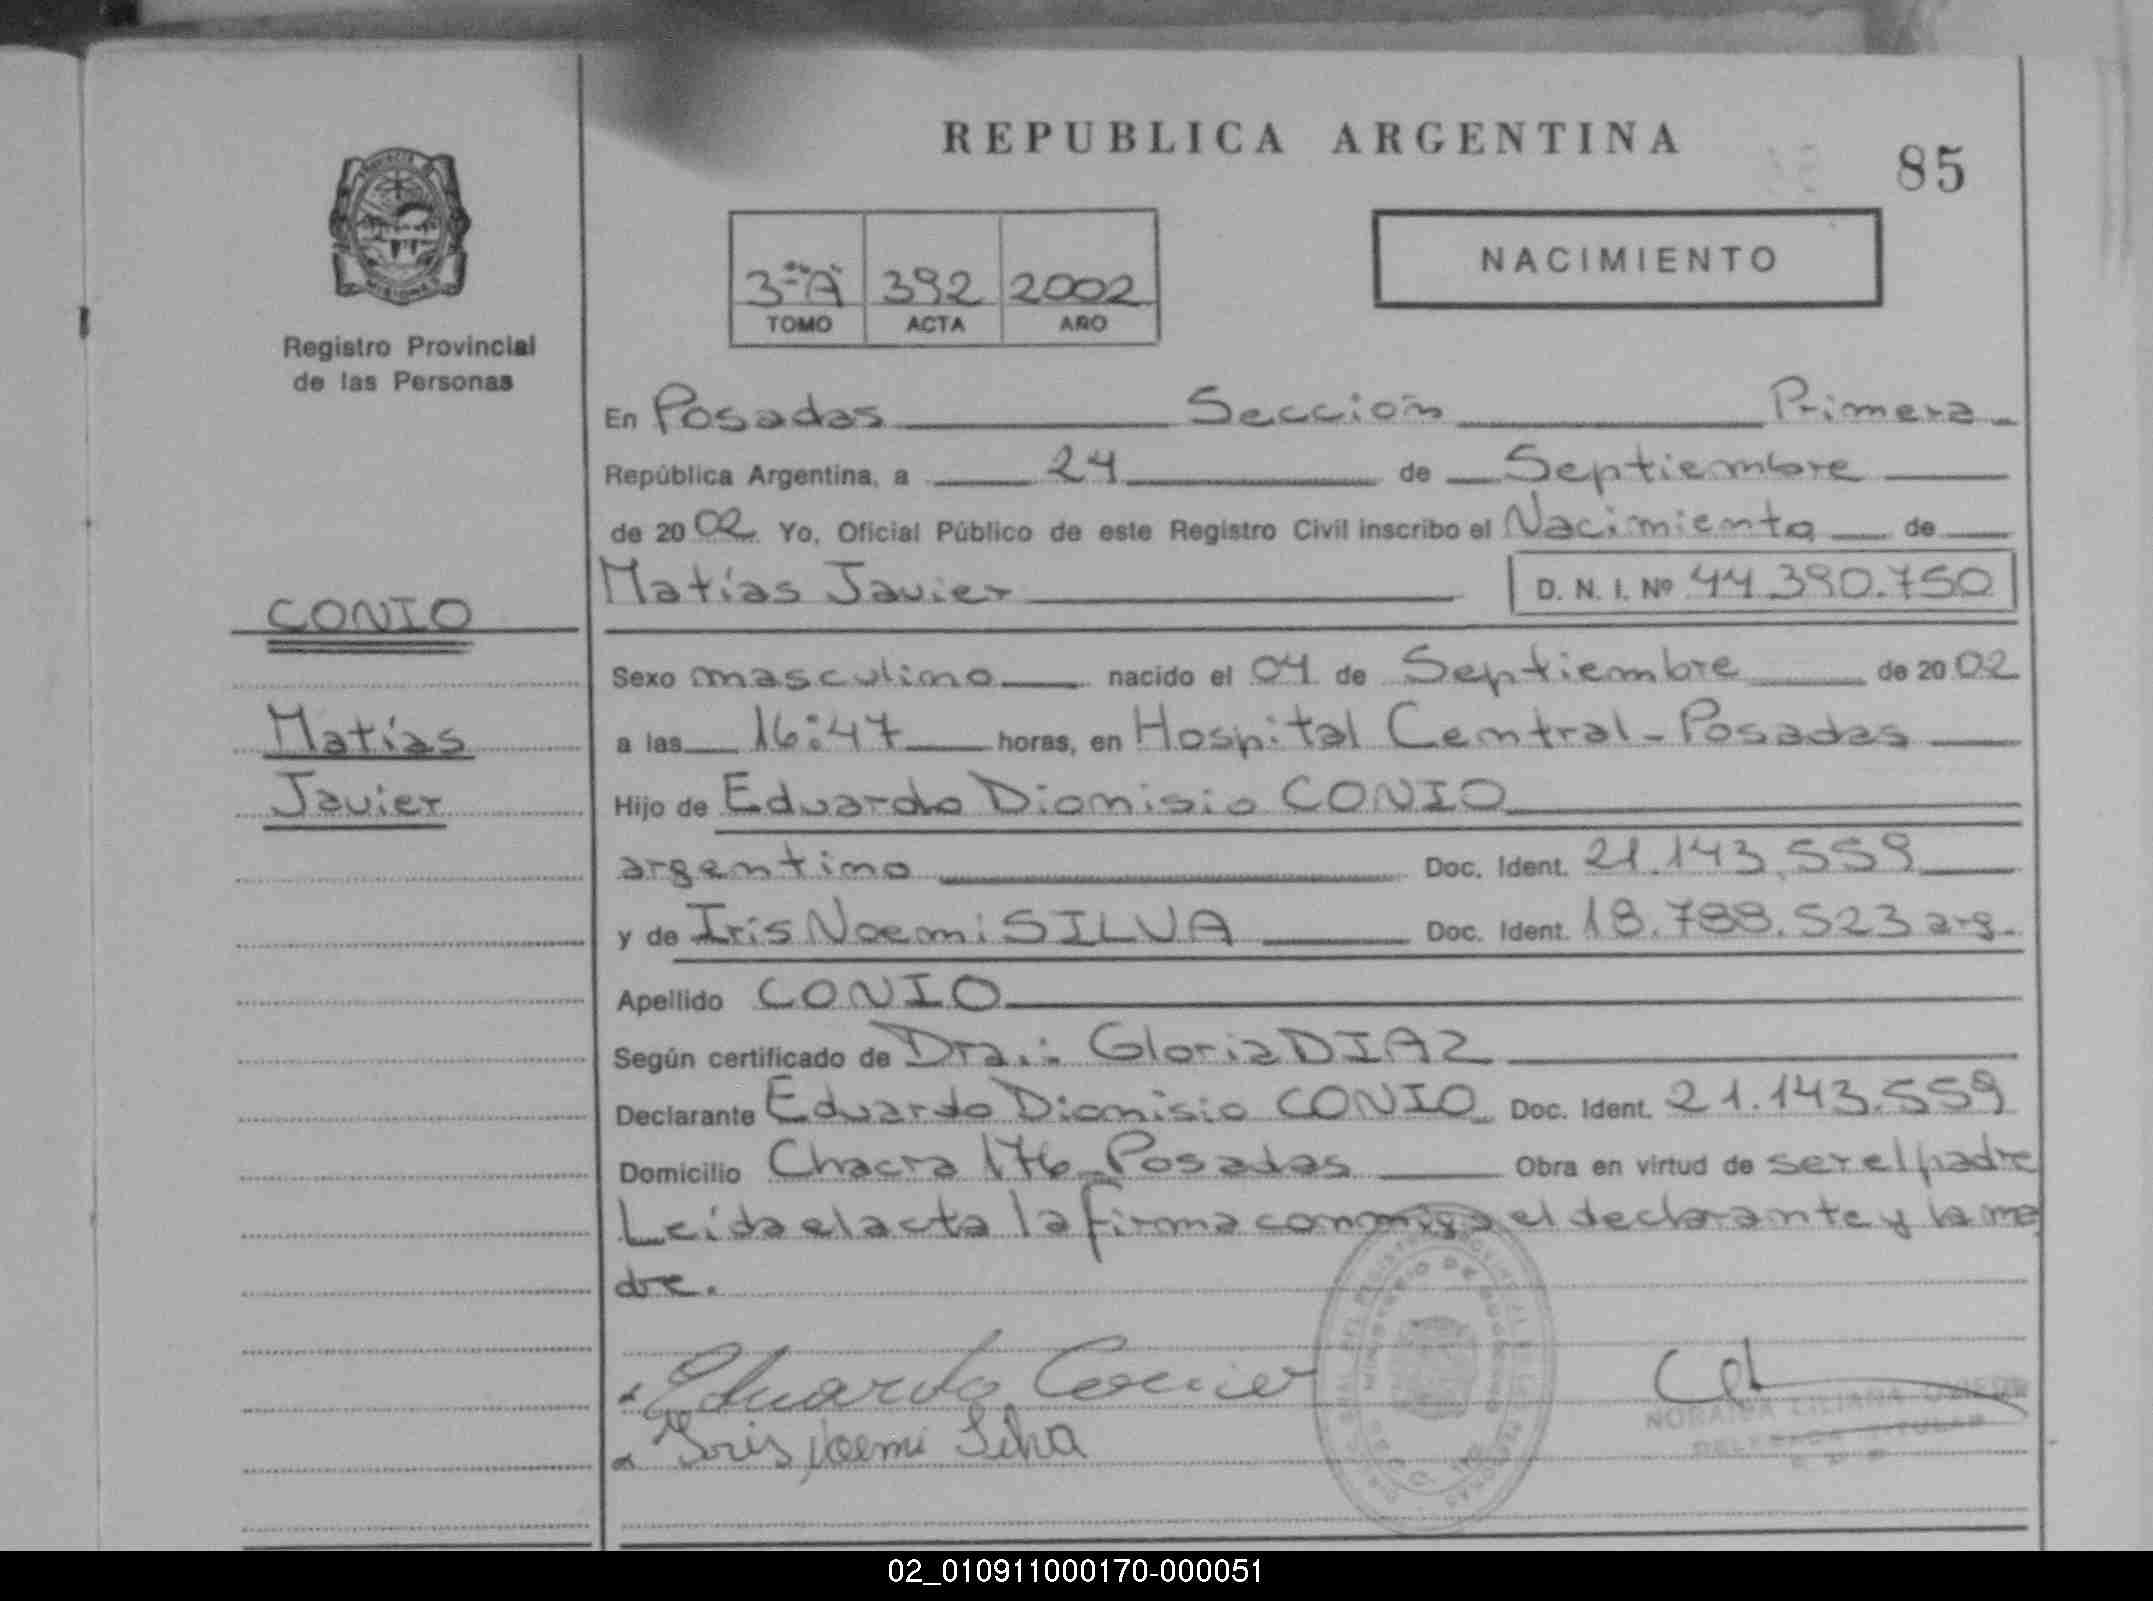 REPUBLICA ARGENTINA
85
NACIMIENTO
3-"A" 392 2002
TOMO ACTA AÑO
Registro Provincial
de las Personas
En Posadas Sección Primera
República Argentina, a 24 de Septiembre
de 2002. Yo, Oficial Público de este Registro Civil inscribo el Nacimiento de
Matías Javier D. N. I. Nº 44.390.750
CONIO
Matías
Javier
Sexo masculino nacido el 04 de Septiembre de 2002
a las 16:47 horas, en Hospital Central - Posadas
Hijo de Eduardo Dionisio CONIO
argentino Doc. Ident. 21.143.559
y de Iris Noemi SILVA Doc. Ident. 18.788.523 arg.
Apellido CONIO
Según certificado de Dra.: Gloria DIAZ
Declarante Eduardo Dionisio CONIO Doc. Ident. 21.143.559
Domicilio Chacra 176 - Posadas Obra en virtud de ser el padre
Leída el acta la firma conmigo el declarante y la ma
dre.
Eduardo Conio
Iris Noemi Silva
LILIANA
TITULAR
02_010911000170-000051